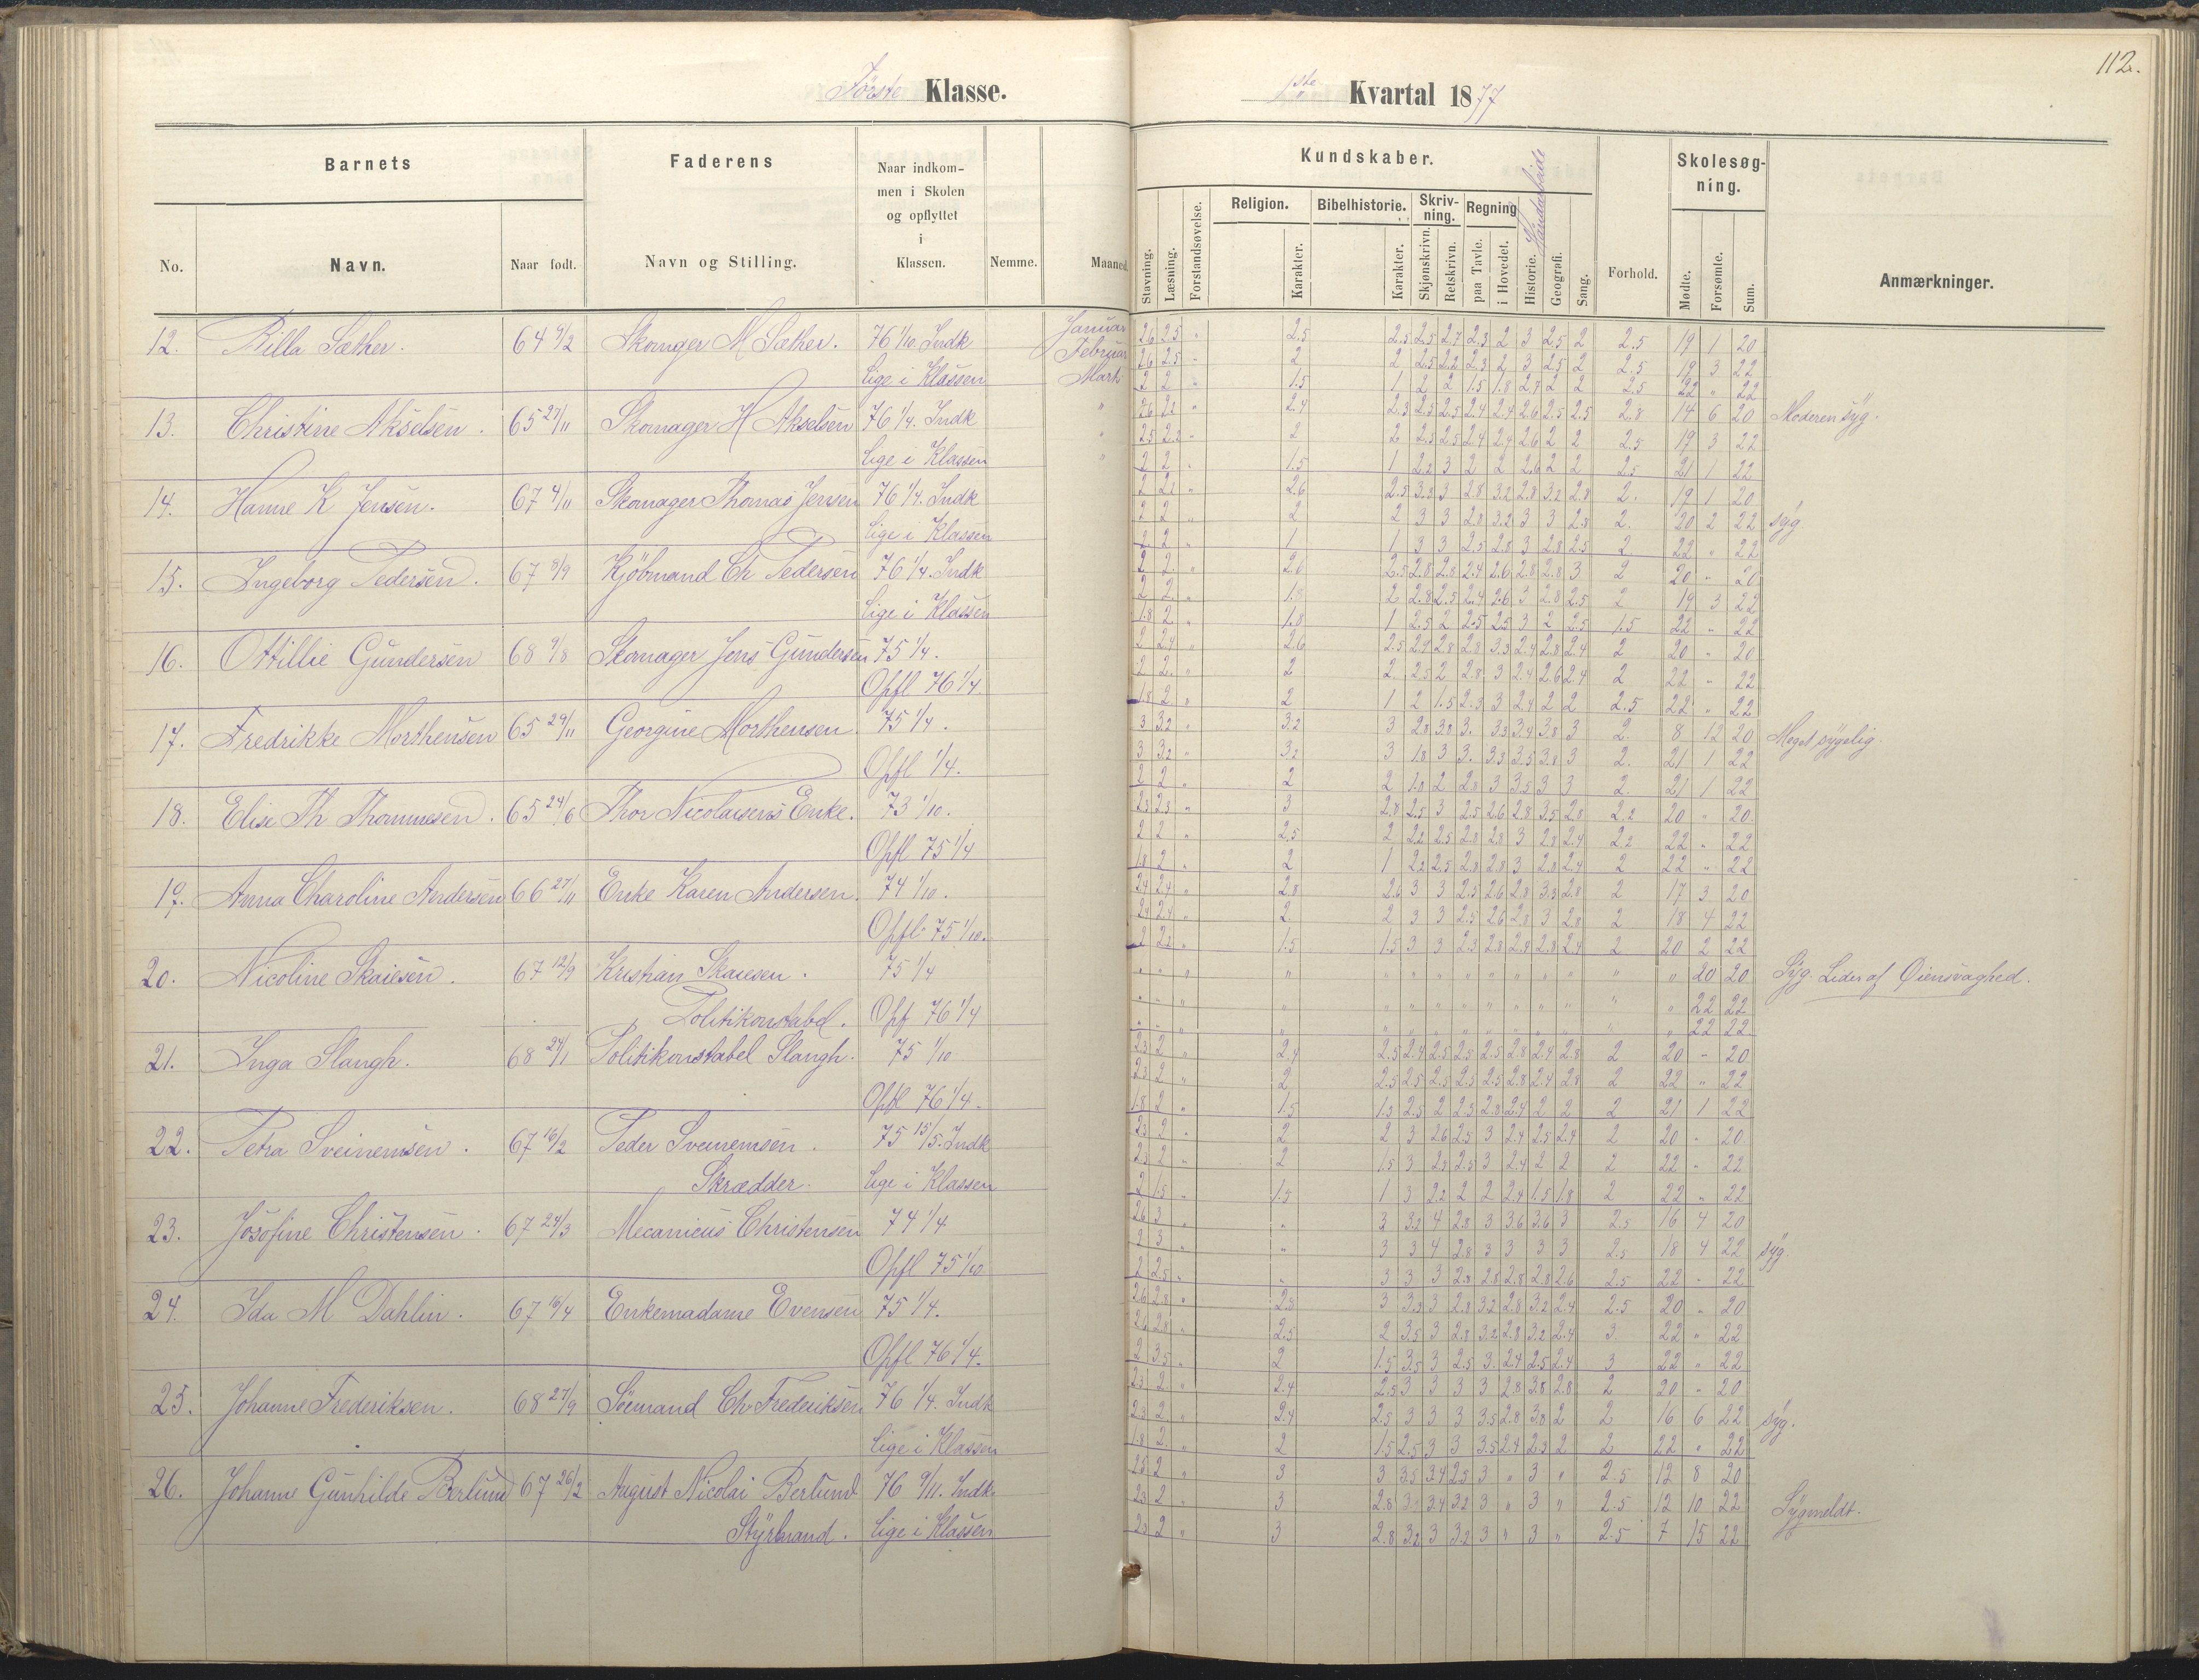 112.
Første Klasse.
1ste Kvartal 1877
Barnets
Faderens
Naar indkommen i Skolen og opflyttet i Klassen.
Nemme.
Maaned
No.
Navn.
Naar født.
Navn og Stilling.
Kundskaber.
Haandarbeide
Stavning.
Læsning.
Forstandsøvelse.
Religion.
Karakter.
Bibelhistorie.
Karakter.
Skrivning.
Skjønskrivn.
Retskrivn.
Regning
paa Tavle.
i Hovedet.
Historie.
Geografi.
Sang.
Forhold.
Skolesøgning.
Mødte.
Forsømte.
Sum.
Anmærkninger.
12. Rilla Sæther. 64 9/2 Skomager M Sæther. 76 1/10 Indk Januar 2.6 2.5 " 2.5 2.5 2.5 2.7 2.3 2 3 2.5 2 2.5 19 1 20
Februar 2.6 2.5 " 2 2 2.5 2.2 2.3 2 3 2.5 2 2.5 19 3 22
lige i Klassen Marts 2 2 " 1.5 1 2 2 1.5 1.8 2.7 2 2 2.5 22 " 22
13. Christine Akselsen. 65 27/11 Skomager H Akselsen 76 1/4. Indk " 2.6 2.2 " 2.4 2.3 2.5 2.5 2.4 2.4 2.6 2.5 2.5 2.8 14 6 20 Moderen syg.
" 2.5 2.2 " 2 2 2.3 2.5 2.4 2.4 2.6 2 2 2.5 19 3 22
lige i Klassen " 2 2 " 1.5 1 2.2 3 2 2 2.6 2 2 2.5 21 1 22
14. Hanne K Jensen. 67 4/11 Skomager Thomas Jensen 76 1/4. Indk 2 2.1 " 2.6 2.5 3.3 3 2.8 3.2 2.8 3.2 2.8 2. 19 1 20
2 2 " 2 2 3 3 2.8 3.2 3 3 2.8 2. 20 2 22 syg
lige i Klassen 2 2 " 1 1 3 3 2.5 2.8 3 2.8 2.5 2 22 " 22
15. Ingeborg Pedersen. 67 8/9 Kjøbmand Ch Pedersen 76 1/4. Indk 2 2. " 2.0 2.5 2.8 2.8 2.4 2.6 2.8 2.8 3 2 20 " 20
2 2. " 1.8 2 2.8 2.5 2.4 2.6 3 2.8 2.5 2 19 3 22
lige i Klassen 1.8 2. " 1.8 1 2.5 2 2.5 2.5 3 2 2.5 1.5 22 " 22
16. Ottillie Gundersen 68 9/8 Skomager Jens Gundersen 75 1/4. 2 2.4 " 2.6 2.5 2.9 2.8 2.8 3.3 2.4 2.8 2.4 2 20 " 20
2 2. " 2 2 2.5 2 2.8 3 2.4 2.6 2.4 2 22 " 22
Opfl 76 1/4. 1.8 2 " 2 1 2 1.5 2.3 3 2.4 2 2 2.5 22 " 22
17. Fredrikke Morthensen 65 29/11 Georgine Morthensen 75 1/4. 3 3.2 " 3.2 3 2.8 3.0 3. 3.3 3.4 3.8 3 2. 8 12 20 Meget sygelig.
3 3.2 " 3.2 3 1.8 3 3. 3.3 3.5 3.8 3 2. 21 1 22
Opfl 1/4. 2 2 " 2 2 1.0 2 2.8 3 3.5 3 3 2. 21 1 22
18. Elise Th Thommesen. 65 24/6 Thor Nicolaisens Enke. 73 1/10. 2.3 2.3 " 3 2.8 2.5 3 2.5 2.6 2.8 3.5 2.8 2.2 20 " 20.
2 2 " 2.5 2 2.2 2.5 2.8 2.8 3 2.8 2.4 2.2 22 " 22
Opfl 75 1/4 1.8 2 " 2 1 2.2 2.5 2.8 2.8 3 2.8 2.4 2 22 " 22
19. Anna Charoline Andersen 66 27/11 Enke Karen Andersen. 74 1/10. 2.4 2.4 " 2.8 2.6 3 3 2.5 2.6 2.8 3.3 2.8 2 17 3 20
2.4 2.4 " 2. 2 3 3 2.5 2.6 2.8 3 2.8 2 18 4 22
Opfl. 75 1/10. 2 2.2 " 1.5 1.5 3 3 2.3 2.8 2.8 2.8 2.4 2 20 2 22
20. Nicoline Skaiesen. 67 12/9 Kristian Skaiesen. 75 1/4 " " " " " " " " " " " " " " 20 20 Syg. Lider af Øiensvaghed.
Politikonstabel. Opf 76 1/4 " " " " " " " " " " " " " " 22 22
" " " " " " " " " " " " " " 22 22
21. Inga Slangh. 68 24/1 Politikonstabel Slangh. 75 1/10 2.3 2 " 2.4 2.5 2.4 2.5 2.5 2.5 2.8 2.4 2.8 2 20 - 20
2.3 2 " 2 2.5 2.5 2.5 2.5 2.5 2.8 2.4 2.8 2 22 " 22
Opfl 76 1/4. 1.8 2 " 1.5 1.3 2.3 2 2.3 2.8 2.4 2 2 2 21 1 22
22. Petra Sveinemsen. 67 16/2 Peder Sveinemsen. 75 15/5. Indk 2.3 2 " 2 2 3 2.6 2.5 3 2.4 2.5 2.4 2 20 " 20
Skrædder. lige i Klassen 2.3 2 " 2 1.5 3 2.3 2.3 3 2.4 2 2 2 22 " 22
2 1.5 " 1.5 1 3 2.2 2 2 2.4 1.5 1.8 2 22 " 22
23. Josefine Christensen. 67 24/3 Mecanicus Christensen 74 1/4 2.6 3 " " 3 3.2 4 2.8 3 3.6 3.6 3 2.5 16 4 20
2 3 " " 3 3 4 2.8 3 3 3 3 2.5 18 4 22 syg.
Opfl 75 1/10 2 2.5 " " 3 3 3 2.8 2.8 2.8 2.8 2.6 2.5 22 - 22
24. Ida M Dahlin. 67 16/4 Enkemadame Evensen 75 1/4. 2.6 2.8 " 2.8 3 3.3 3 2.8 3.2 2.8 3.2 2.4 2.5 20 " 20
2.6 2.8 " 2.5 2 3.5 3 2.8 3.2 2.8 3.2 2.4 3 22 " 22
Opfl 76 1/4. 2 3.5 " 2 1.5 3.5 3 2.5 3. 2.4 2.5 2.4 3 22 " 22
25. Johanne Frederiksen. 68 27/9 Sømand Ch Frederiksen 76 1/4. Indk 2.3 2. " 2.4 2.5 3 3 3 3 2.8 3.8 2.8 2 20 " 20
2.3 2. " 2.4 2.5 3 3 3 3.5 2.8 3.8 2 2 16 6 22 syg.
lige i Klassen 1.8 2. " 2 1.5 2.5 3 3 3.5 2.4 2.3 2 2 22 " 22
26. Johanne Gunhilde Berlund 67 26/2 August Nicolai Berlund 76 9/11. Indk. 2.5 2 " 3 3 3.5 3.4 2.3 3 " 3 " 2.5 12 8 20
2.3 2 " 3 2.8 3 3.4 3.2 3 " 3 " 2.5 12 10 22 Sygmeldt.
Styrmand. lige i Klassen 2.3 2 " 3 2.8 3.2 3 3.2 3 " 3 " 2.5 7 15 22